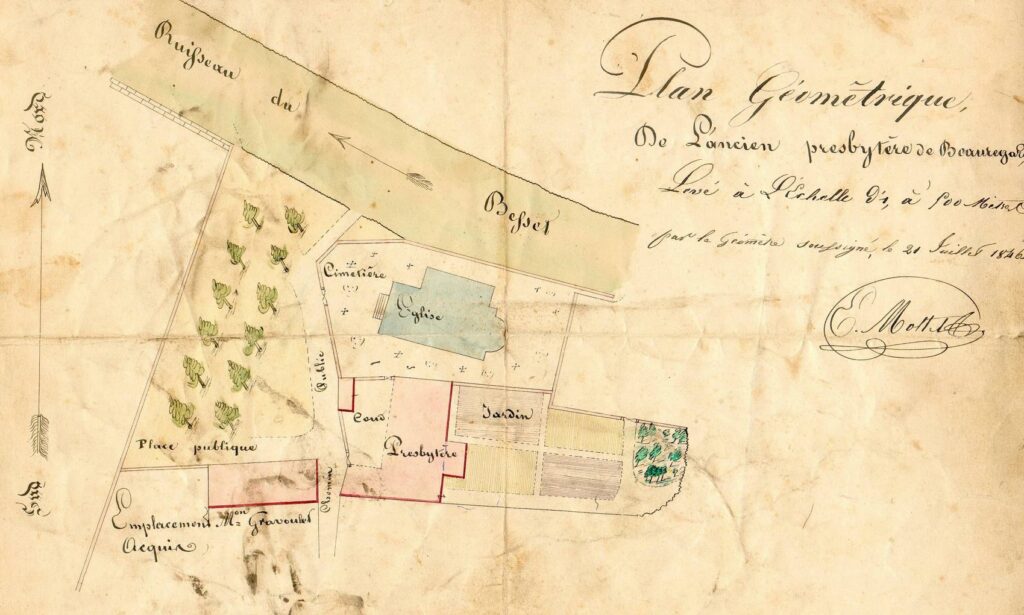 Plan Géométrique,
De L'ancien presbytère de Beauregard,
Levé à L'Échelle d'1, à 500 Mètres
par le Géomètre soussigné, le 21 Juillet 1846
Nord
Ruisseau du Besset
Cimetière
Eglise
Public
Cour
Jardin
Presbytère
Place publique
Chemin
Sud
Emplacement M^on Gravoulet
Acquis